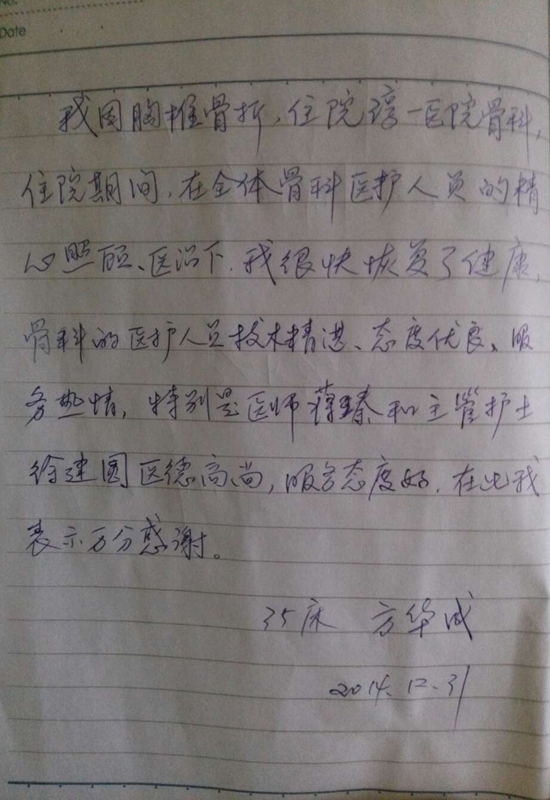 No.
Date
我因胸椎骨折,住院琼一医院骨科,
住院期间,在全体骨科医护人员的精
心照顾、医治下.我很快恢复了健康,
骨科的医护人员技术精湛、态度优良、服
务热情,特别是医师蒋臻和主管护士
徐建图医德高尚,服务态度好.在此我
表示万分感谢。
35床 方华成
2014.12.31